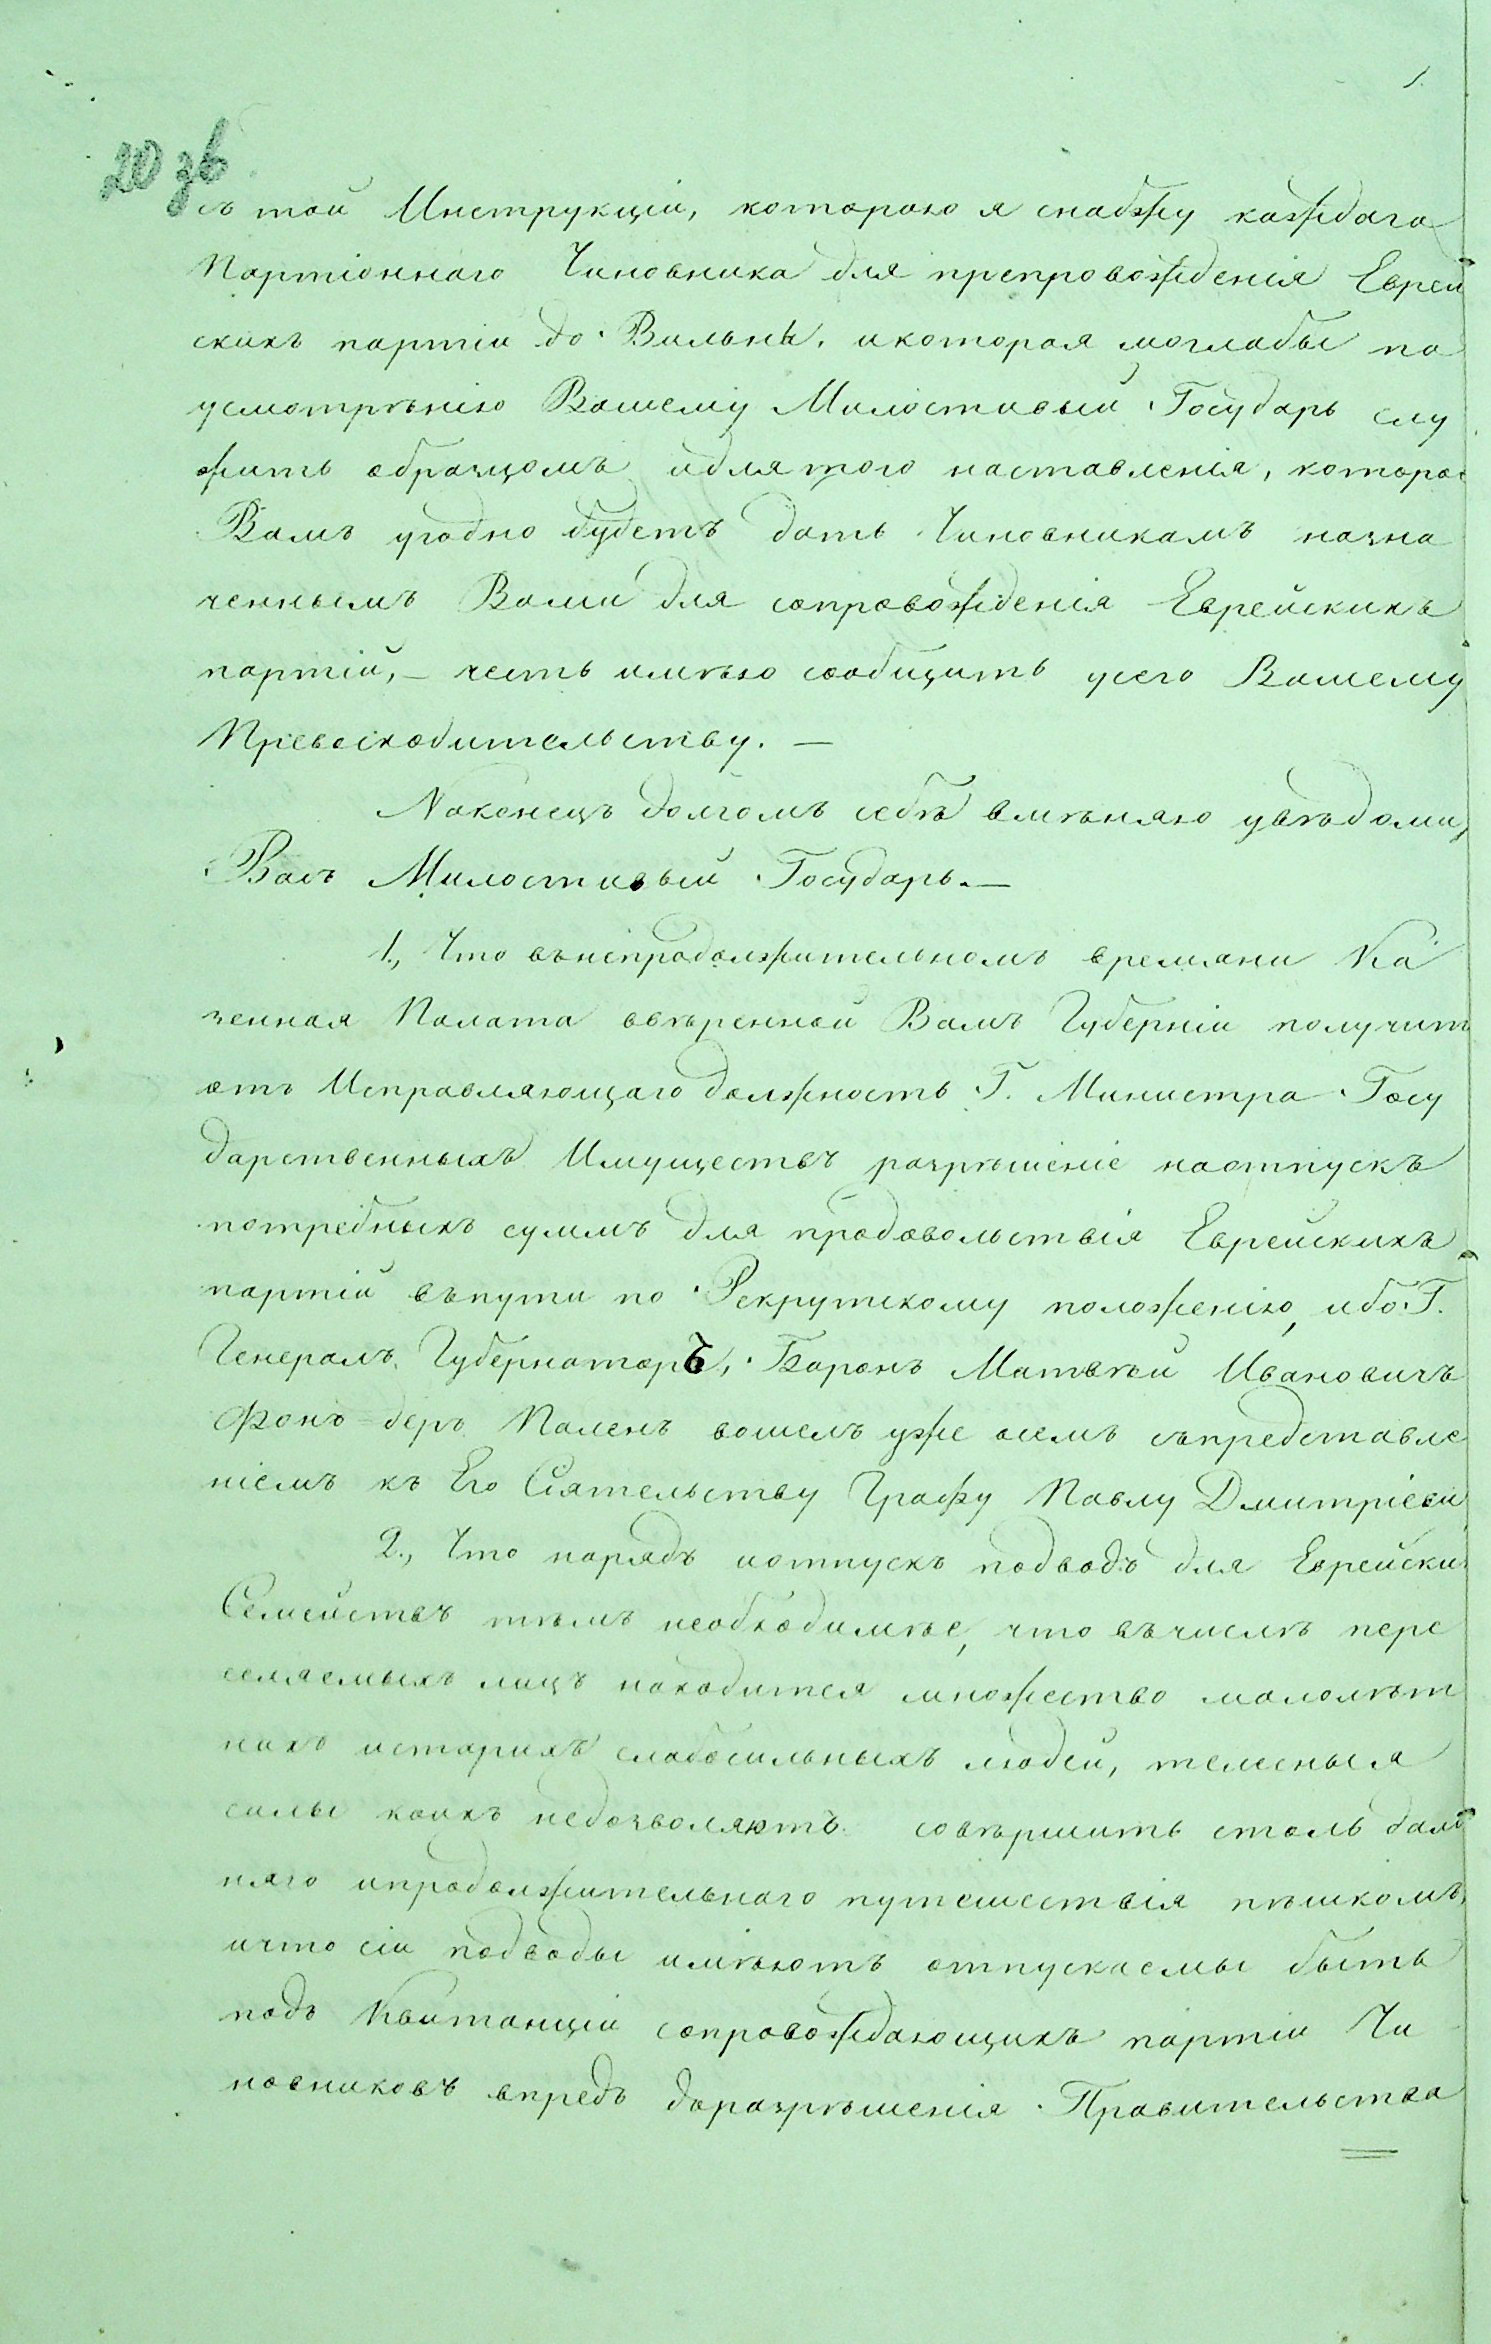 20 зв
съ той Инструкціи, которою я снабжу каждаго
Партіоннаго Чиновника для препровожденія Еврей
скихъ партіи до Вильны, икоторая моглабы по
усмотрѣнію Вашему Милостивый Государь слу
жить образцомъ идлятого наставленія, которое
Вамъ угодно будетъ дать Чиновникамъ назна
ченнымъ Вами для сопровожденія Еврейскихъ
партій, — честь имѣю сообщить усего Вашему
Превосходительству. —
Наконецъ долгомъ себѣ вмѣняю увѣдоми
Васъ Милостивый Государь. —
1., Что внепродолжительномъ времяни Ка
зенная Палата ввѣренной Вамъ Губерніи получит
отъ Исправляющаго должность Г. Министра Госу
дарственныхъ Имуществъ разрѣшеніе наотпускъ
потребныхъ суммъ для продовольствія Еврейскихъ
партій въпути по Рекрутскому положенію, ибо Г.
Генералъ Губернаторъ, Баронъ Матвѣй Ивановичъ
Фонъ-деръ Паленъ вошелъ уже осемъ съпредставле
ніемъ къ Его Сіятельству Графу Павлу Дмитріеви
2., Что нарядъ иотпускъ подводъ для Еврейски
Семействъ тѣмъ необходимѣе, что въчислѣ пере
селяемыхъ лицъ находится множество малолѣт
нихъ истарихъ слабосильныхъ людей, телесныя
силы коихъ недозволяютъ совѣршить столь даль
няго ипродолжительнаго путешествія пѣшкомъ,
ичто сіи подводы имѣютъ отпускаемы быть
подъ Квитанціи сопровождающихъ партіи Чи
новниковъ впредь доразрѣшенія Правительства